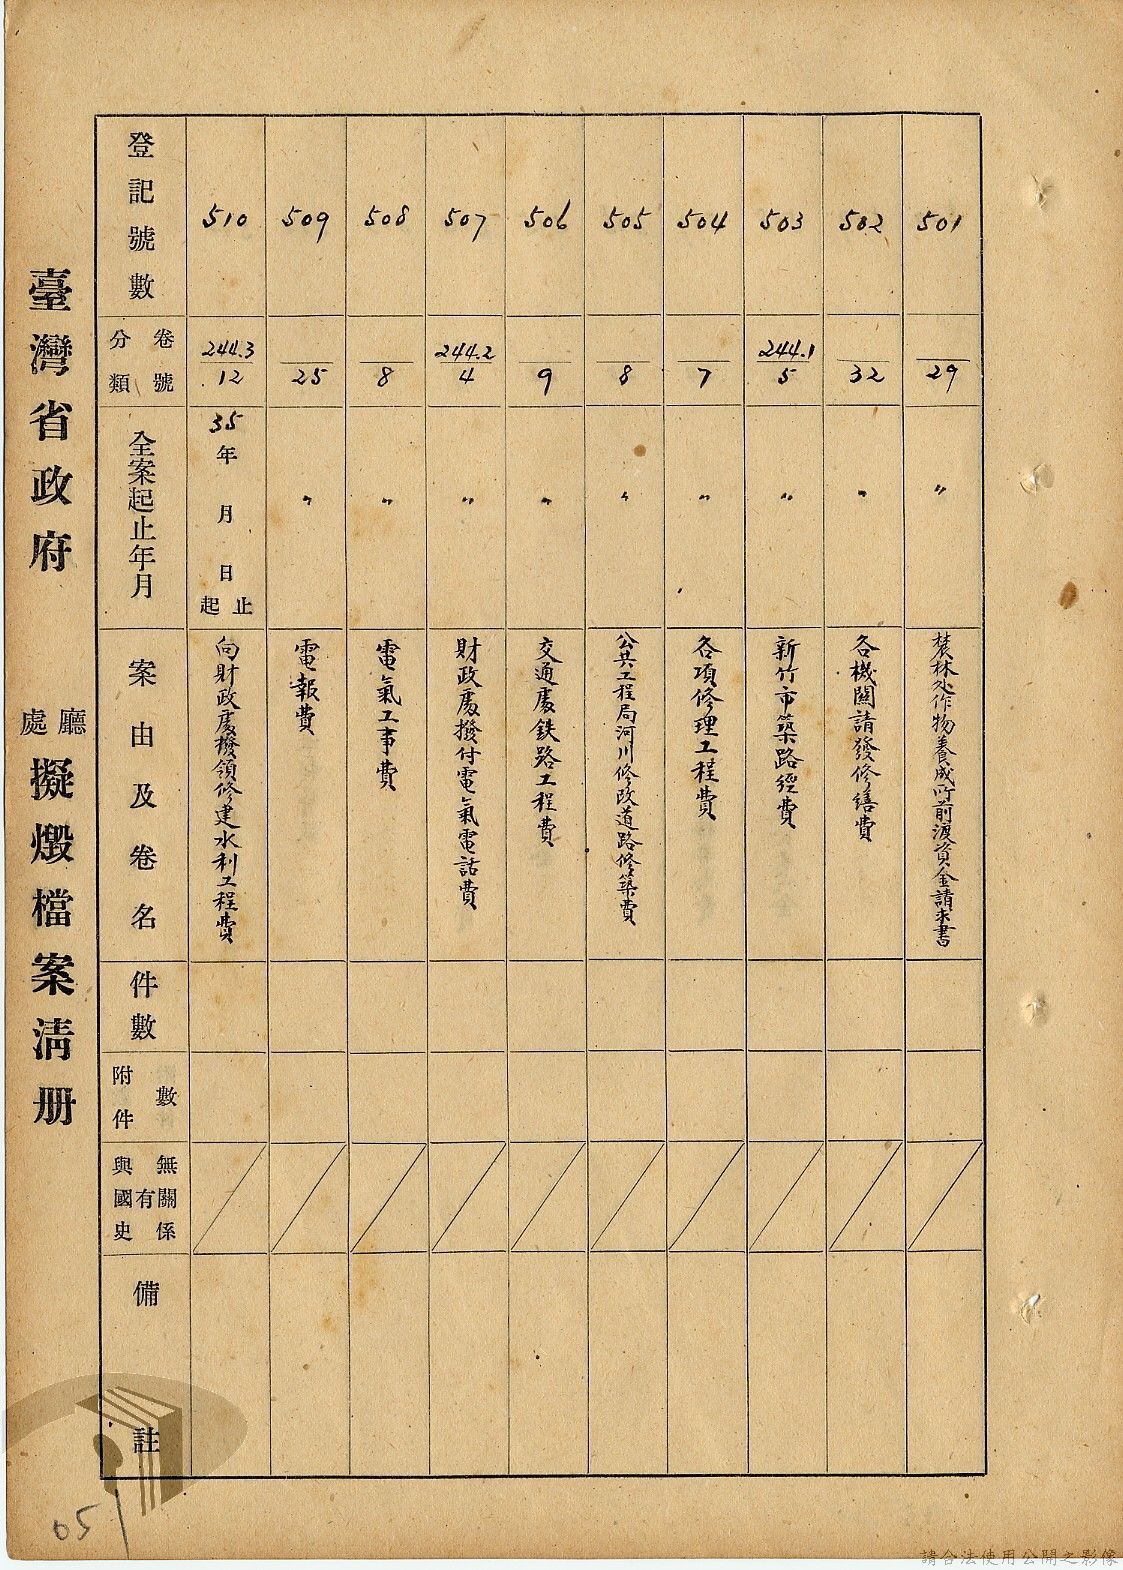 501
29
〃
農林処作物養成所前渡資金請求書
502
32
〃
各機關請發修繕費
503
244.1
5
〃
新竹市築路經費
504
7
〃
各項修理工程費
505
8
〃
公共工程局河川修改道路修築費
506
9
〃
交通處鉄路工程費
507
244.2
4
〃
財政處撥付電氣電話費
508
8
〃
電氣工事費
509
25
〃
電報費
510
244.3
12
35年 月 日
止
起
向財政處撥領修建水利工程費
登記號數
卷號
分類
全案起止年月
案由及卷名
件數
附件
數
與國史
有
無關係
備註
臺灣省政府
廳
處
擬燬檔案清册
051
請合法使用公開之影像